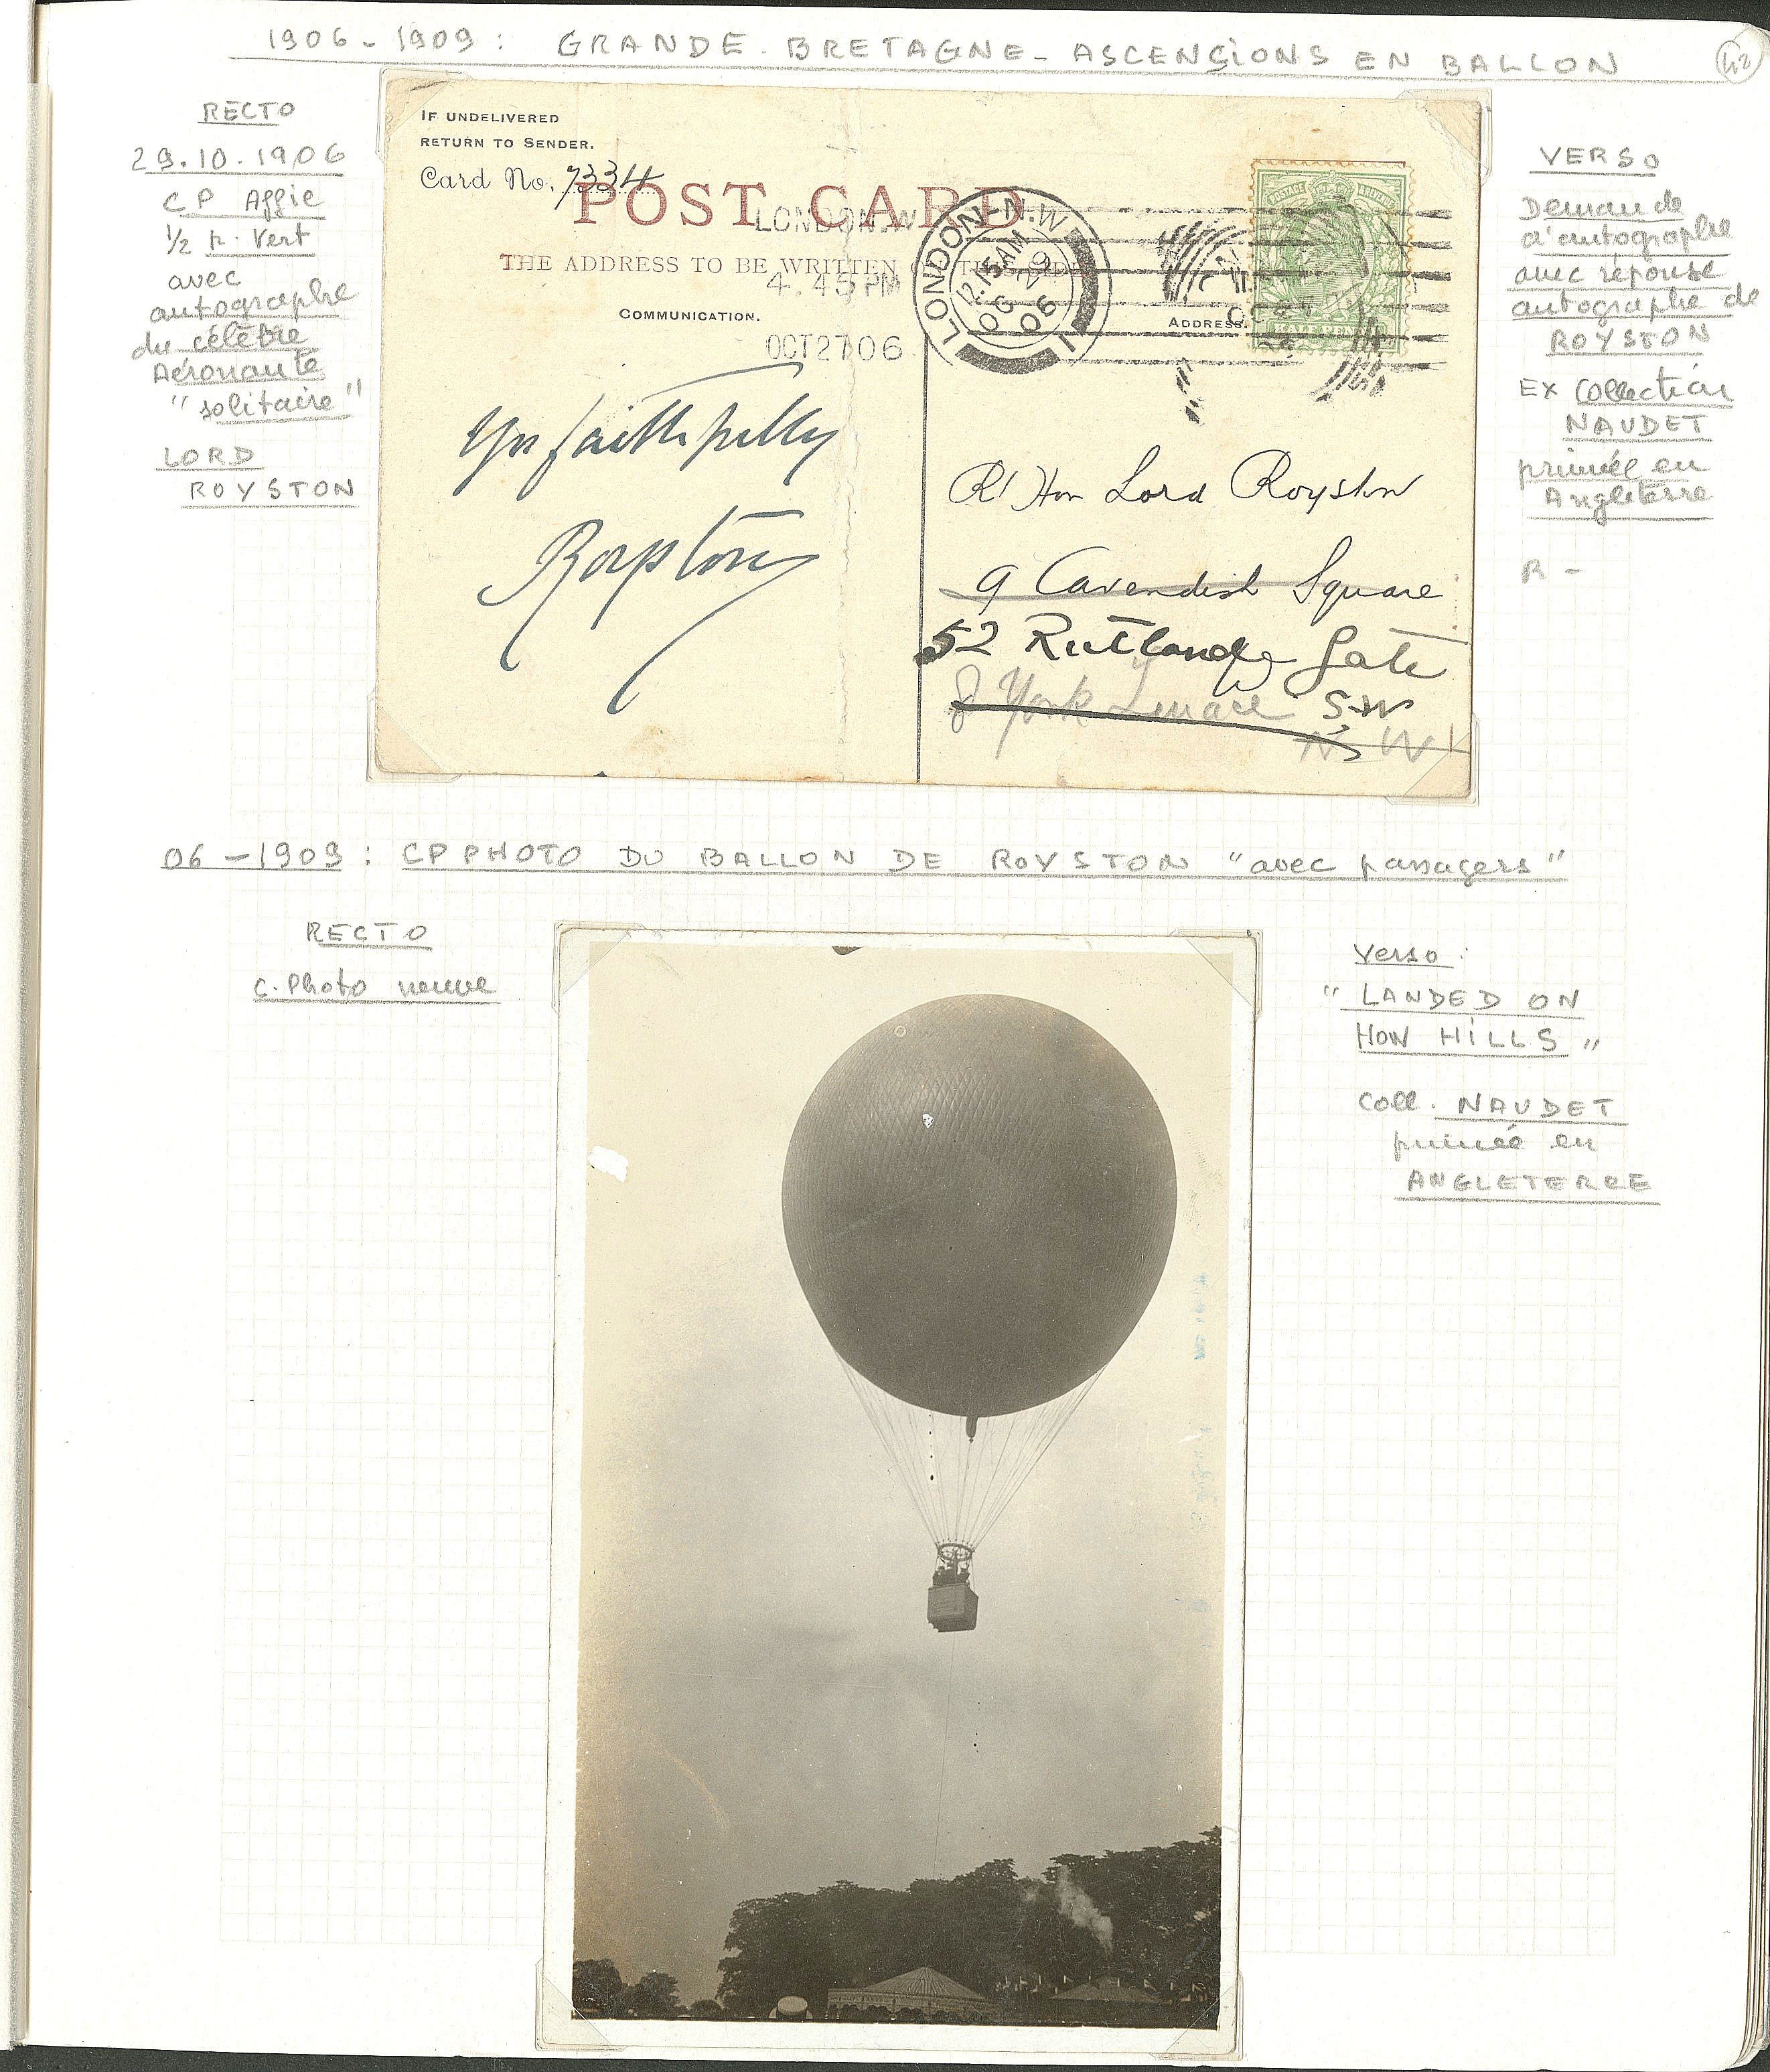 1906 - 1909 : GRANDE - BRETAGNE - ASCENÇIONS EN BALLON
42
RECTO
29.10.1906
CP Affie
½ p. Vert
avec
autographe
du célèbre
Aéronaute
"solitaire"
LORD
ROYSTON
IF UNDELIVERED
RETURN TO SENDER.
Card No. 7334
POST CARD
LONDON.W
THE ADDRESS TO BE WRITTEN
4.45 PM
COMMUNICATION.
OCT 27 06
LONDON.N.W
12.15AM
OC 29
06
ADDRESS.
HALF PENNY
Yrs faithfully
Royston
Rt Hon Lord Royston
9 Cavendish Square
52 Rutland Gate
8 York Terrace S.W
N W
VERSO
Demande
d'autographe
avec réponse
autographe de
ROYSTON
Ex Collection
NAUDET
primée en
Angleterre
R -
06 - 1909 : CP PHOTO DU BALLON DE ROYSTON "avec passagers"
RECTO
C. Photo neuve
Verso :
"LANDED ON
HOW HILLS"
Coll. NAUDET
primée en
ANGLETERRE